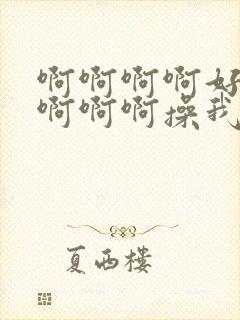 啊啊啊啊好
啊啊啊操我
夏西楼